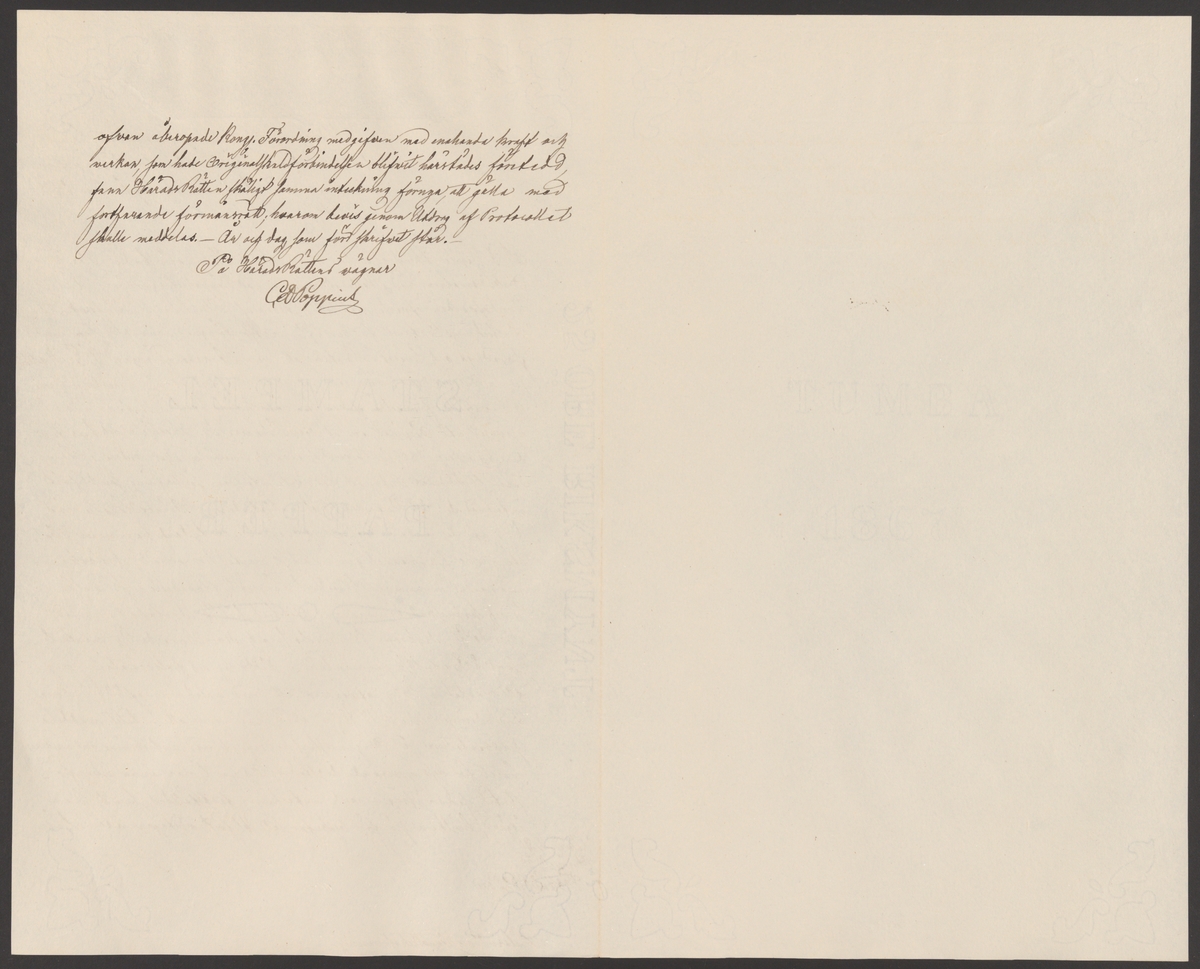 ofvan åberopade Kongl. Förordning medgifven med enahanda kraft och
verkan, som hade Originalskuldförbindelsen blifwit härstädes företedd,
fann HäradsRätten skäligt samma inteckning förnya, att gälla med
fortfarande förmånsrätt, hvarom bevis genom Utdrag af Protocollet
skulle meddelas. — År och dag som förr skrifvet står. —
På HäradsRättens wägnar
Poppius